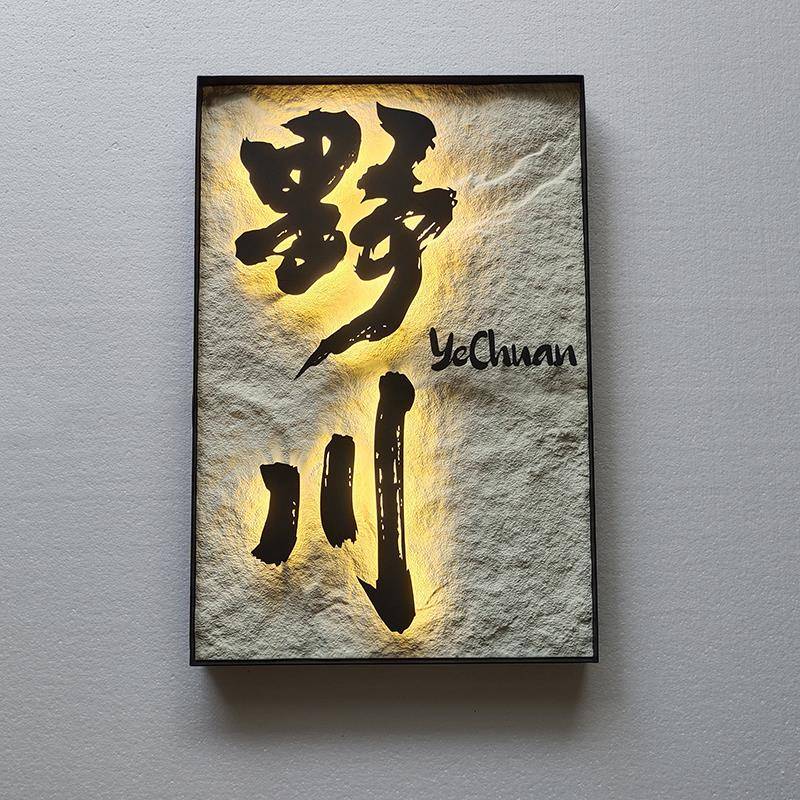 野川
YeChuan